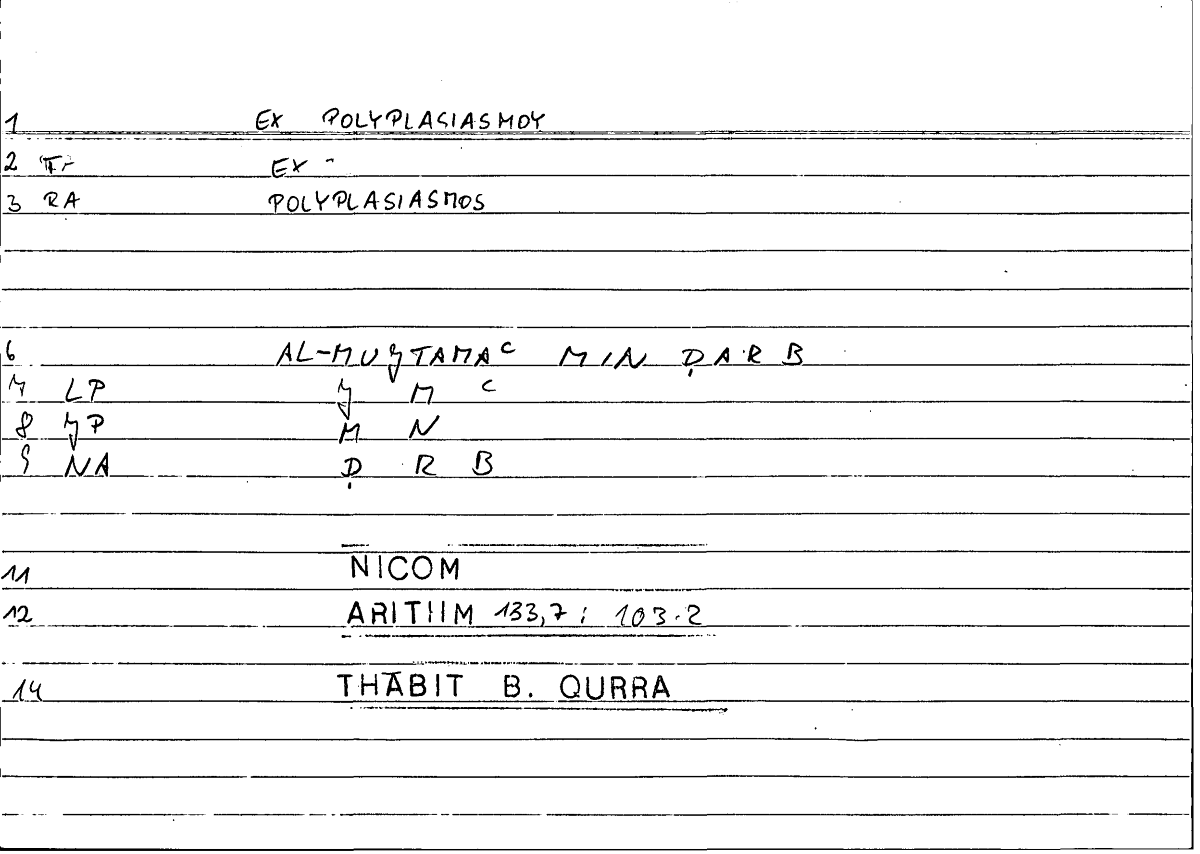 1 EX POLYPLASIASMOY
2 EX -
3 RA POLYPLASIASMOS
6 AL-MUǦTAMAᶜ MIN ḌARB
7 LP Ǧ M ᶜ
8 ǦP M N
9 NA Ḍ R B
11 NICOM
12 ARITHM 133,7 ; 103.2
14 THĀBIT B. QURRA